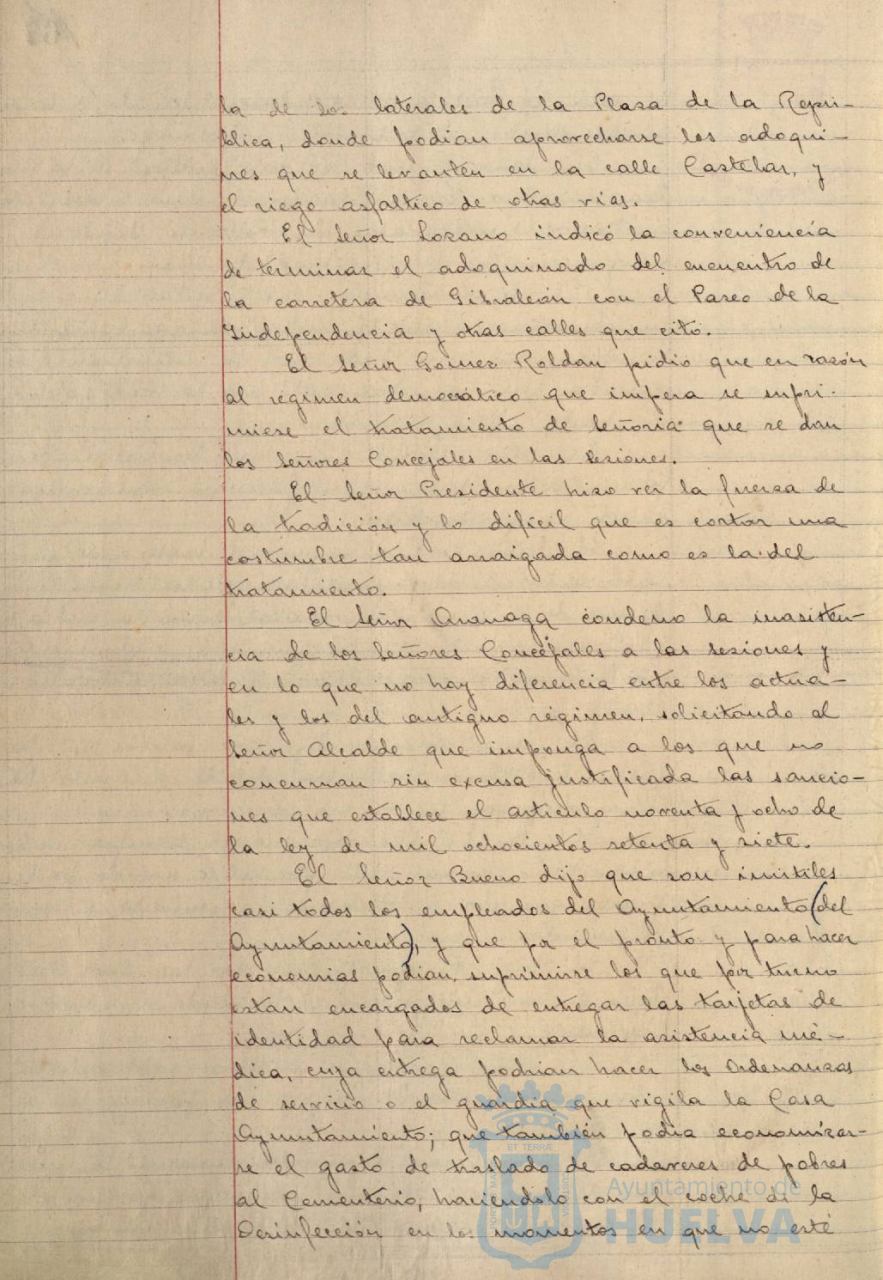 la de los laterales de la Plaza de la Repú-
blica, donde podian aprovecharse los adoqui-
nes que se levanten en la calle Castelar, y
el riego asfaltico de otras vias.
El Señor Lozano indicó la conveniencia
de terminar el adoquinado del encuentro de
la carretera de Gibraleón con el Paseo de la
Independencia y otras calles que citó.
El Señor Gómez Roldan pidio que en razón
al régimen democrático que impera se supri-
miese el tratamiento de Señoria que se dan
los Señores Concejales en las sesiones.
El Señor Presidente hizo ver la fuerza de
la tradición y lo dificil que es cortar una
costumbre tan arraigada como es la del
tratamiento.
El Señor condeno la inasisten-
cia de los Señores Concejales a las sesiones y
en lo que no hay diferencia entre los actua-
les y los del antiguo régimen, solicitando al
Señor Alcalde que imponga a los que no
concurran sin excusa justificada las sancio-
nes que establece el articulo noventa y ocho de
la ley de mil ochocientos setenta y siete.
El Señor Bueno dijo que son inutiles
casi todos los empleados del Ayuntamiento (del
Ayuntamiento), y que por el pronto y para hacer
economias podian suprimirse los que por turno
estan encargados de entregar las tarjetas de
identidad para reclamar la asistencia mé-
dica, cuya entrega podrian hacer los Ordenanzas
de servicio o el guardia que vigila la Casa
Ayuntamiento; que también podia economizar-
se el gasto de traslado de cadaveres de pobres
al Cementerio, haciendolo con el coche de la
Desinfección en los momentos en que no esté
Ayuntamiento de
HUELVA